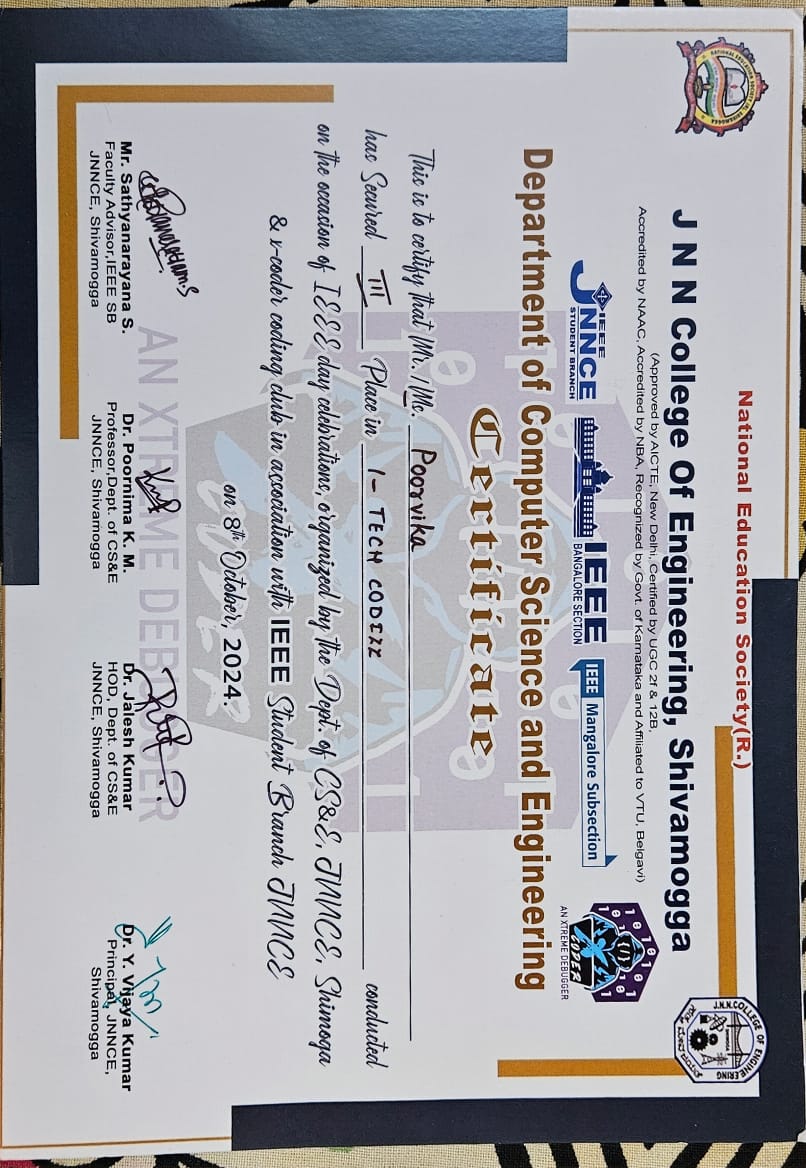 National Education Society(R.)
J N N College Of Engineering, Shivamogga
(Approved by AICTE, New Delhi, Certified by UGC 2f & 12B,
Accredited by NAAC, Accredited by NBA, Recognized by Govt. of Karnataka and Affiliated to VTU, Belgavi)
IEEE
JNNCE
STUDENT BRANCH
IEEE
BANGALORE SECTION
IEEE Mangalore Subsection
CODER
AN XTREME DEBUGGER
J.N.N.COLLEGE OF ENGINEERING
Department of Computer Science and Engineering
Certificate
This is to certify that Mr. / Ms. Poorvika
has Secured III Place in I - TECH CODERZ conducted
on the occasion of IEEE day celebrations, organized by the Dept. of CS&E, JNNCE, Shimoga
& x-coder coding club in association with IEEE Student Branch JNNCE
on 8th October, 2024.
AN XTREME DEBUGGER
Mr. Sathyanarayana S.
Faculty Advisor,IEEE SB
JNNCE, Shivamogga
Dr. Poornima K. M.
Professor,Dept. of CS&E
JNNCE, Shivamogga
Dr. Jalesh Kumar
HOD, Dept. of CS&E
JNNCE, Shivamogga
Dr. Y. Vijaya Kumar
Principal, JNNCE,
Shivamogga